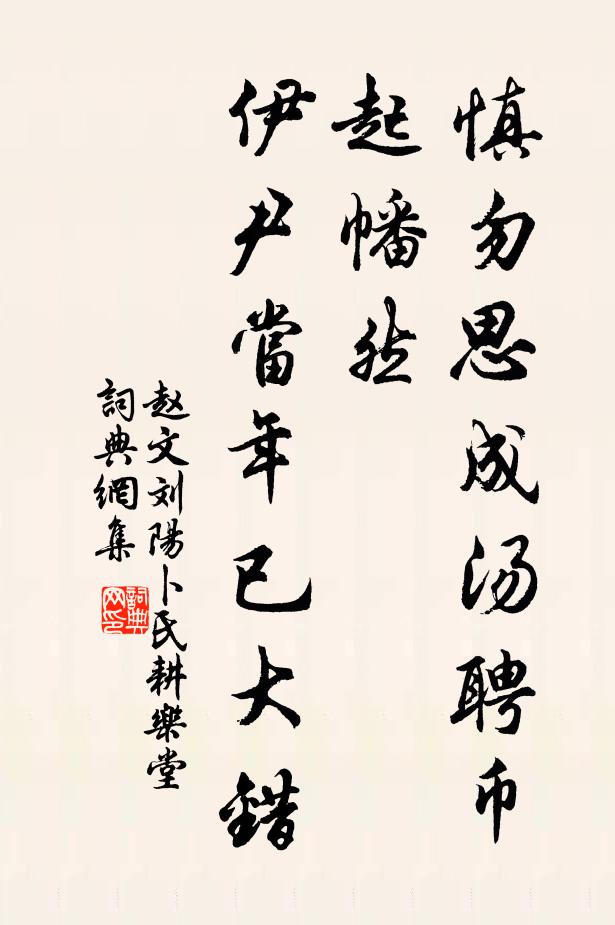 慎勿思成汤聘币
起幡然
伊尹當年已大錯
赵文刘陽卜氏耕樂堂
詞典網集
詞典网印